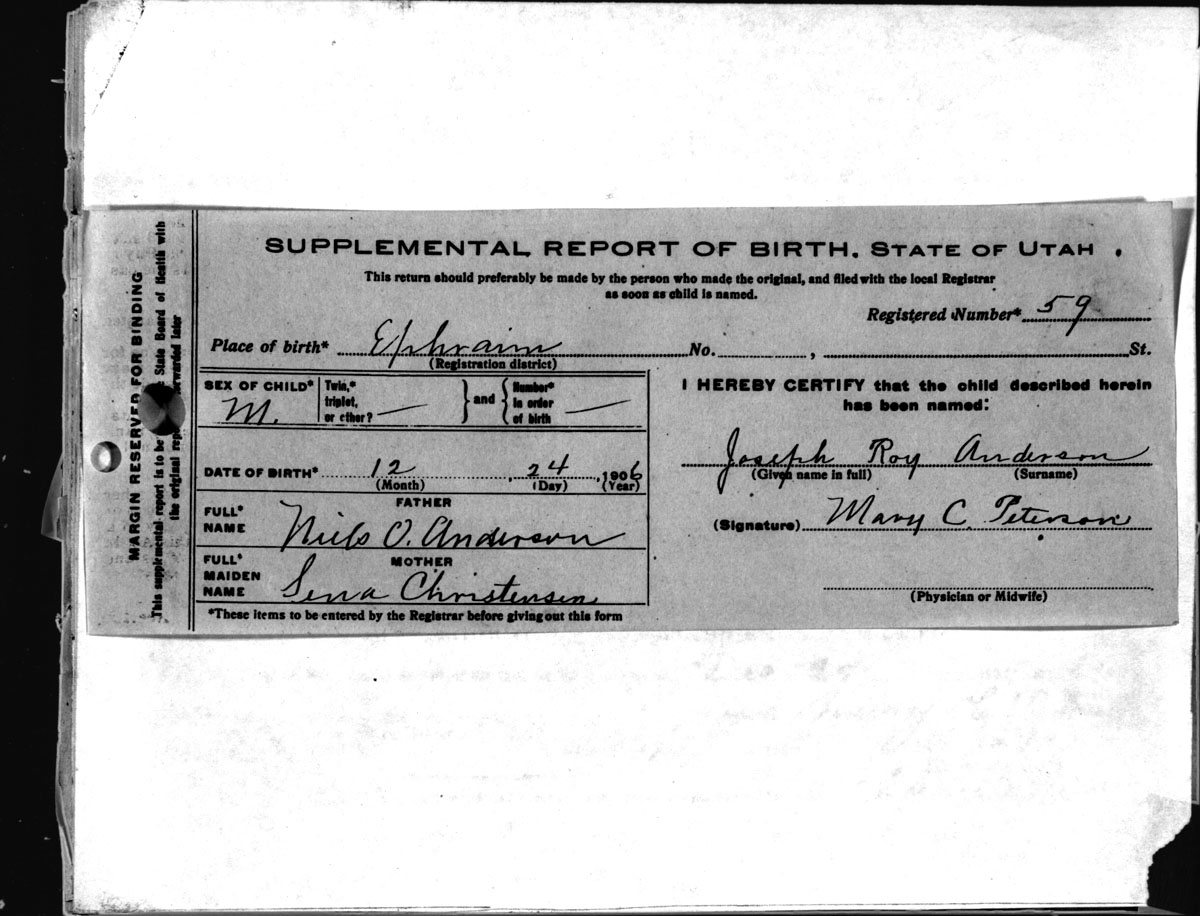 SUPPLEMENTAL REPORT OF BIRTH. STATE OF UTAH.
This return should preferably be made by the person who made the original, and filed with the local Registrar
as soon as child is named.
Registered Number* 59
Place of birth* Ephraim No. , St.
(Registration district)
SEX OF CHILD* M.
Twin,* triplet, or other? — } and { Number* in order of birth —
DATE OF BIRTH* 12 , 24 , 1906
(Month) (Day) (Year)
FATHER
FULL* NAME Niels O. Anderson
MOTHER
FULL* MAIDEN NAME Sena Christensen
*These items to be entered by the Registrar before giving out this form
I HEREBY CERTIFY that the child described herein
has been named:
Joseph Roy Anderson
(Given name in full) (Surname)
(Signature) Mary C. Peterson
(Physician or Midwife)
MARGIN RESERVED FOR BINDING
This supplemental report is to be State Board of Health with
the original forwarded later